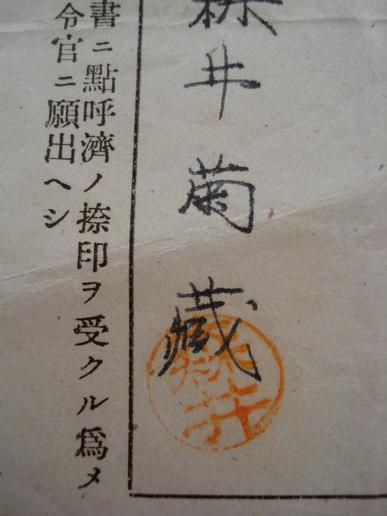 井菊蔵
書ニ點呼濟ノ捺印ヲ受クル爲メ
令官ニ願出ヘシ